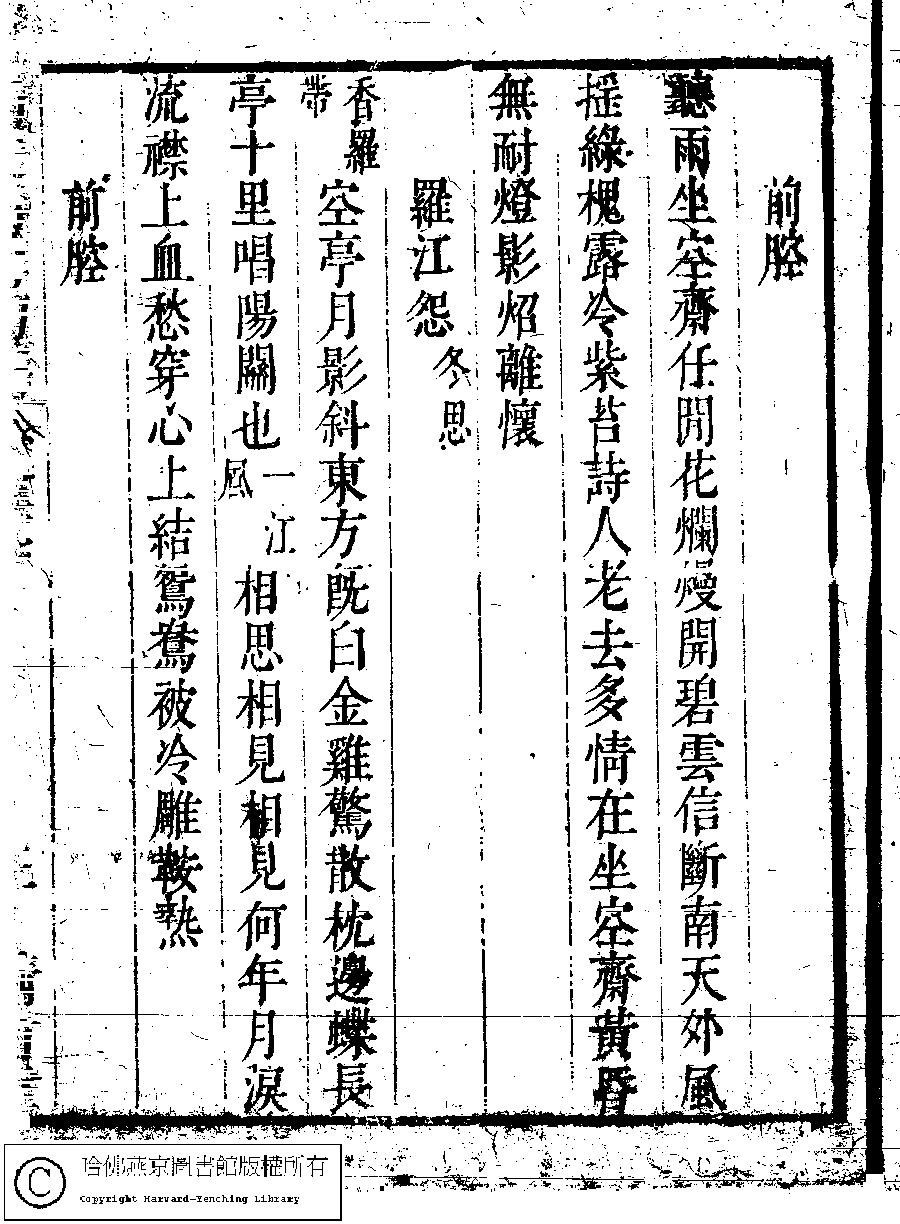 前腔
聽雨坐空齋任閒花爛熳開碧雲信斷南天外風
揺綠槐露冷紫苔詩人老去多情在坐空齋黃昏
無耐燈影炤離懷
羅江怨 冬思
香羅帶 空亭月影斜東方旣白金雞驚散枕邊蝶長
亭十里唱陽關也 一江風 相思相見相見何年月淚
流襟上血愁穿心上結鴛鴦被冷雕鞍熱
前腔
哈佛燕京圖書館版權所有
Copyright Harvard-Yenching Library